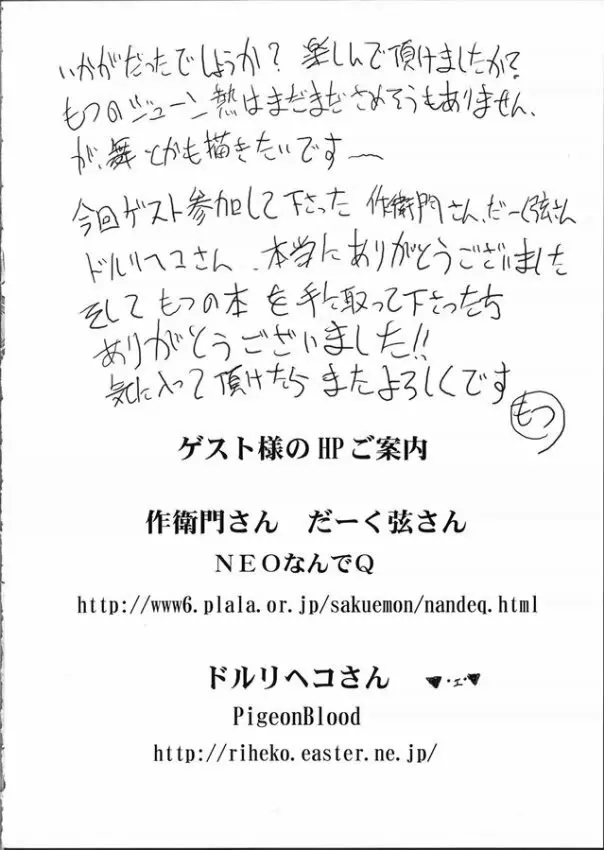 いかがだったでしょうか? 楽しんで頂けましたか?
もつのジューン熱はまだまださめそうもありません、
が、舞とかも描きたいです〜
今回ゲスト参加して下さった 作衛門さん、だーく弦さん
ドルリヘコさん、本当にありがとうございました
そして もつの本 を手に取って下さった
ありがとうございました!!
気に入って頂けたら またよろしくです
もつ
ゲスト様のHPご案内
作衛門さん だーく弦さん
NEOなんでQ
http://www6.plala.or.jp/sakuemon/nandeq.html
ドルリヘコさん ▼・ェ・▼
PigeonBlood
http://riheko.easter.ne.jp/